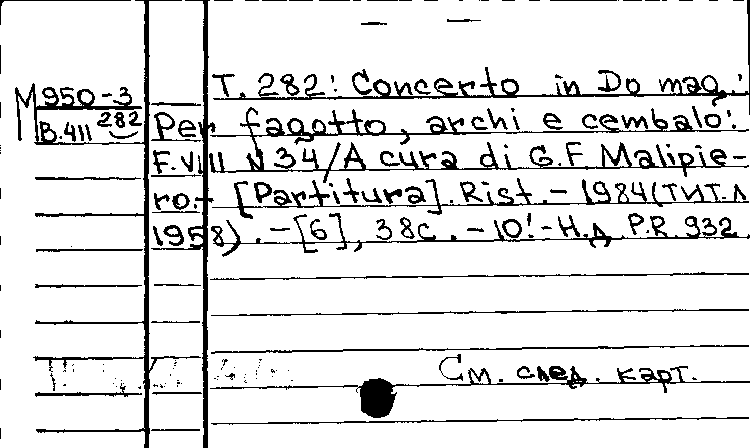 T. 282: Concerto in Do mag.:
M 950-3
B.411 282 Per fagotto, archi e cembalo:
F. VIII N 34/A cura di G.F. Malipie-
ro.- [Partitura]. Rist. - 1984 (тит. л
1958). - [6], 38с. - 10! - Н.д. P.R. 932
См. след. карт.